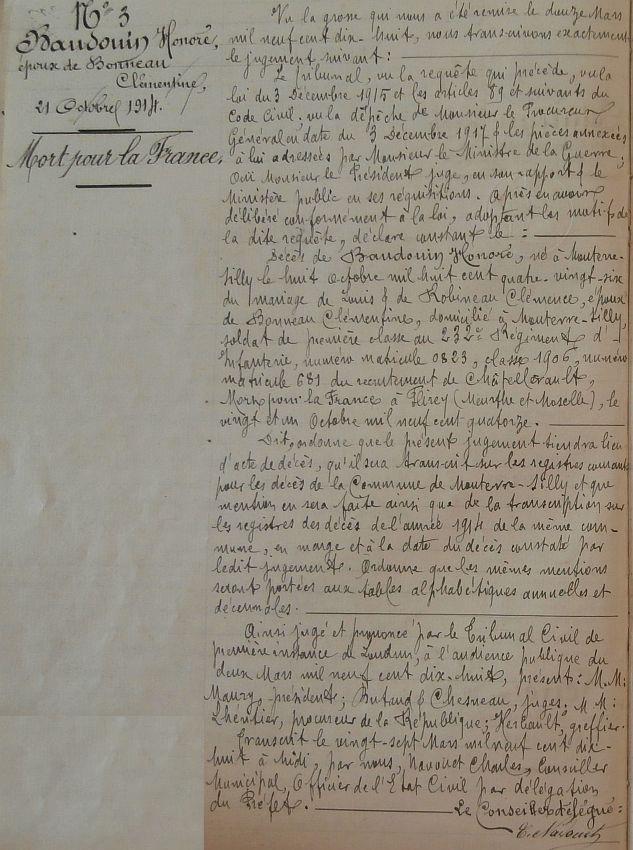 N° 3
Baudouin Honoré,
époux de Bonneau
Clémentine,
21 Octobre 1914.
Mort pour la France.
Vu la grosse qui nous a été remise le douze Mars
mil neuf cent dix-huit, nous transcrivons exactement
le jugement suivant :
Le Tribunal, vu la requête qui précède, vu la
loi du 3 Décembre 1915 et les articles 89 et suivants du
Code Civil, vu la dépêche de Monsieur le Procureur
Général en date du 3 Décembre 1917 & les pièces annexées
à lui adressées par Monsieur le Ministre de la Guerre ;
Ouï Monsieur le Président juge, en son rapport & le
Ministère public en ses réquisitions. Après en avoir
délibéré conformément à la loi, adoptant les motifs de
la dite requête, déclare constant le :
Décès de Baudouin Honoré, né à Mouterre-
Silly le huit Octobre mil huit cent quatre-vingt-six
du mariage de Louis & de Robineau Clémence, époux
de Bonneau Clémentine, domicilié à Mouterre-Silly,
soldat de première classe au 232e Régiment d'
Infanterie, numéro matricule 0823, classe 1906, numéro
matricule 681 du recrutement de Châtellerault,
Mort pour la France à Flirey (Meurthe et Moselle), le
vingt et un Octobre mil neuf cent quatorze.
Dit, ordonne que le présent jugement tiendra lieu
d'acte de décès, qu'il sera transcrit sur les registres courants
pour les décès de la Commune de Mouterre-Silly et que
mention en sera faite ainsi que de la transcription sur
les registres des décès de l'année 1914 de la même com-
mune, en marge et à la date du décès constaté par
ledit jugement. Ordonne que les mêmes mentions
seront portées aux tables alphabétiques annuelles et
décennales.
Ainsi jugé et prononcé par le Tribunal Civil de
première instance de Loudun, à l'audience publique du
deux Mars mil neuf cent dix-huit, présents : M.M.
Maury, président ; & Chesneau, juges ; M.M :
Lhéritier, procureur de la République ; Hérault, greffier.
Transcrit le vingt-sept Mars mil neuf cent dix-
huit à Midi, par nous, Navouet Charles, Conseiller
Municipal, Officier de l'Etat Civil par délégation
du Préfet.
Le Conseiller délégué :